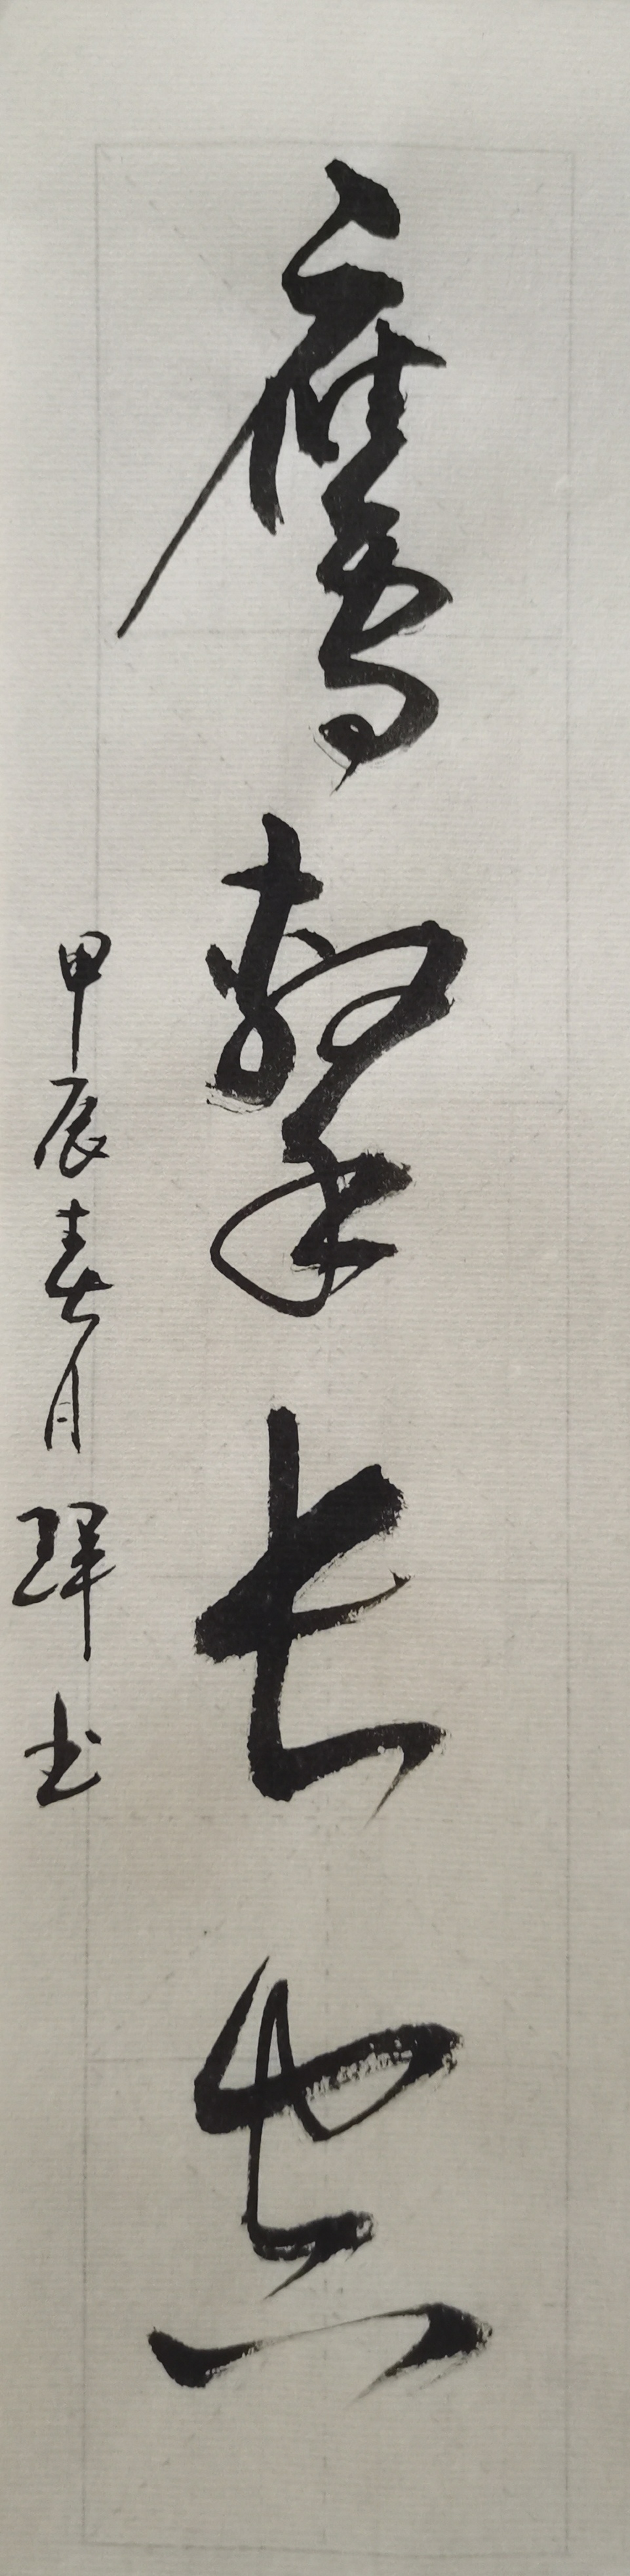 鹰擊长空
甲辰春月珲书